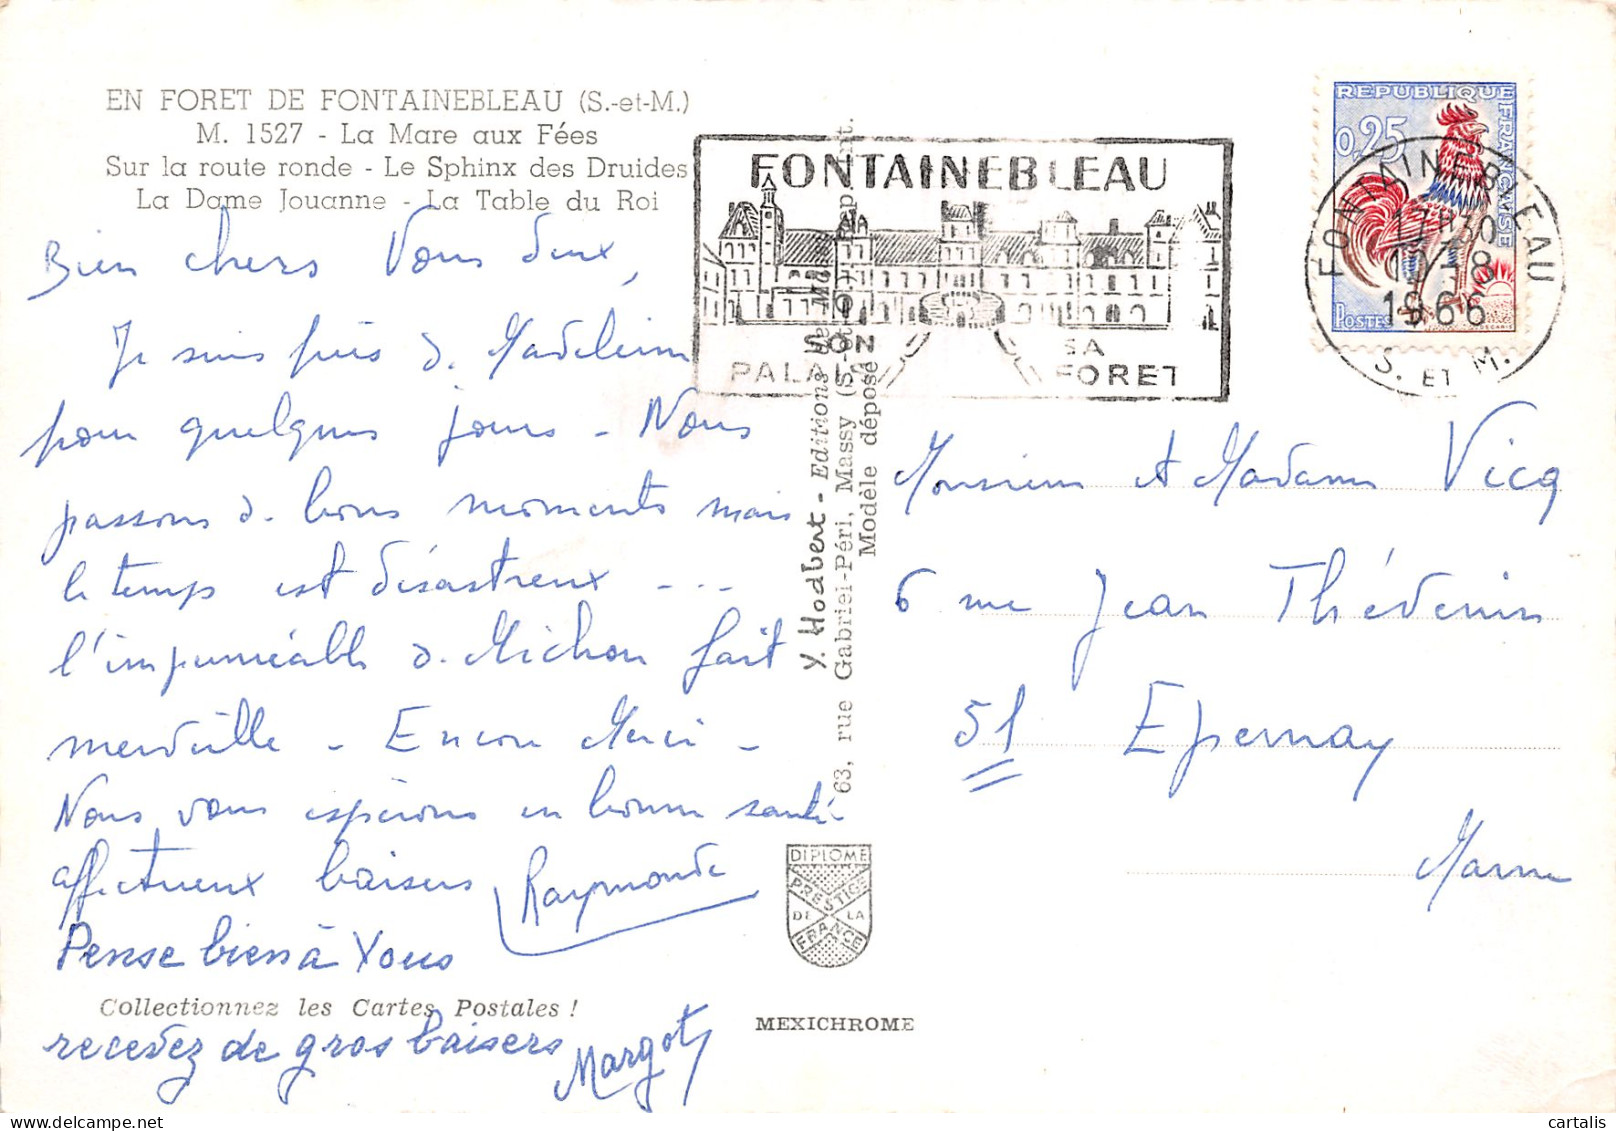 EN FORET DE FONTAINEBLEAU (S.-et-M.)
M. 1527 - La Mare aux Fées
Sur la route ronde - Le Sphinx des Druides
La Dame Jouanne - La Table du Roi
Bien chers Vous deux,
Je suis près de Madeleine
pour quelques jours - Nous
passons de bons moments mais
le temps est désastreux - - -
l'imperméable de Michou fait
merveille - Encore Merci -
Nous vous espérons en bonne santé -
affectueux baisers Raymonde
Pense bien à Vous
Collectionnez les Cartes Postales !
recevez de gros baisers Margot
Y. Hodbert - Editions de
63, rue Gabriel-Péri, Massy (S.-et-O.)
Modèle déposé
DIPLOME
PRESTIGE
DE LA
FRANCE
MEXICHROME
FONTAINEBLEAU
SON PALAIS
SA FORET
REPUBLIQUE FRANÇAISE
0,25
POSTES
FONTAINEBLEAU
17H30
1966
S. ET M.
Monsieur et Madame Vicq
6 rue Jean Thévenin
51 Epernay
Marne
cartalis